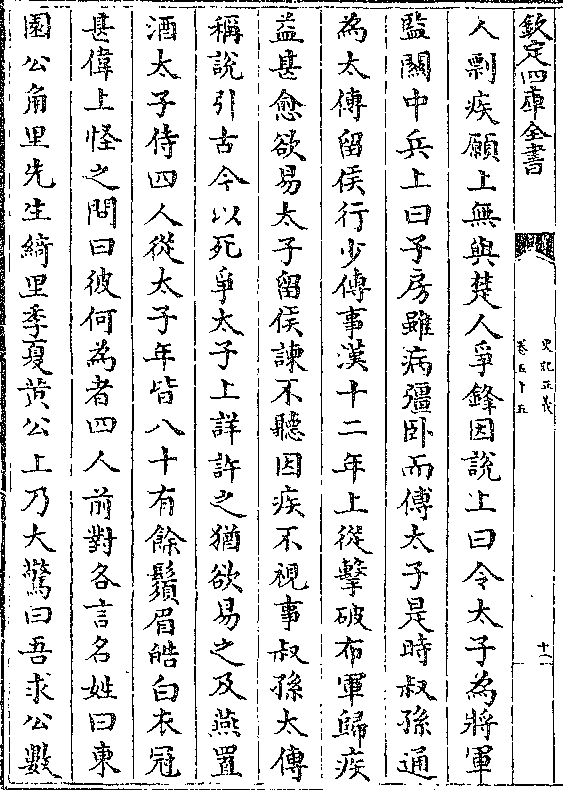 欽定四庫全書
史記正義
卷五十五
十一
人剽疾願上無與楚人爭鋒因說上曰令太子為將軍
監關中兵上曰子房雖病彊卧而傅太子是時叔孫通
為太傅留侯行少傅事漢十二年上從擊破布軍歸疾
益甚愈欲易太子留侯諫不聽因疾不視事叔孫太傅
稱說引古今以死爭太子上詳許之猶欲易之及燕置
酒太子侍四人從太子年皆八十有餘鬚眉皓白衣冠
甚偉上怪之問曰彼何為者四人前對各言名姓曰東
園公角里先生綺里季夏黃公上乃大驚曰吾求公數